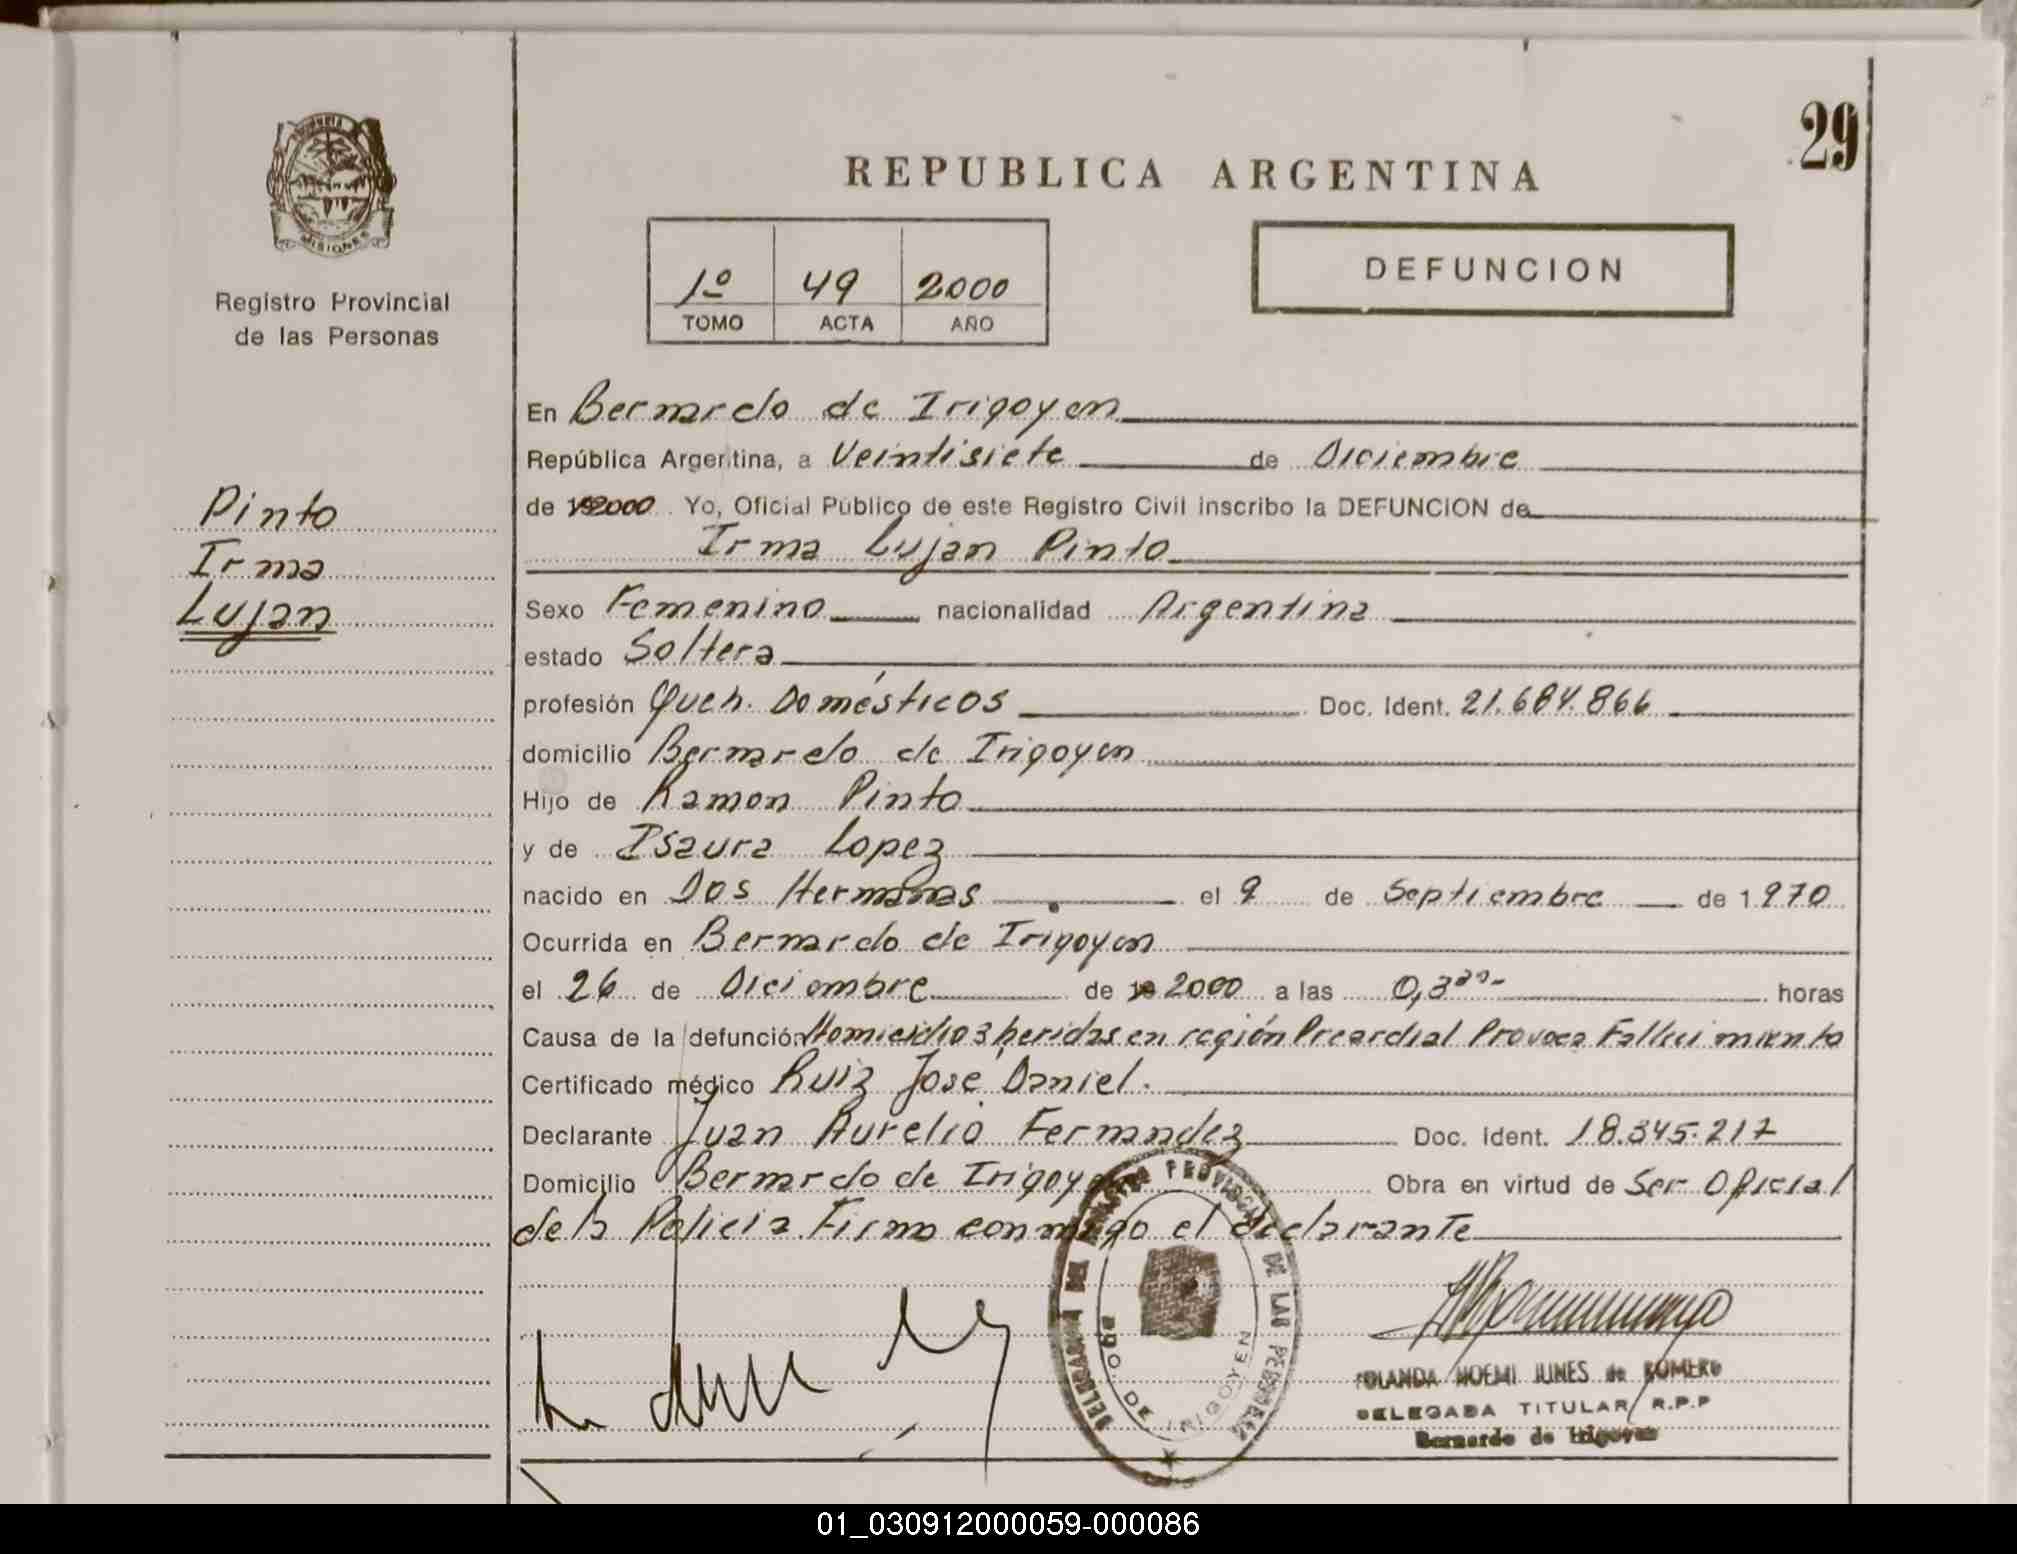 29
PROVINCIA
MISIONES
Registro Provincial
de las Personas
Pinto
Irma
Lujan
REPUBLICA ARGENTINA
1º 49 2000
TOMO ACTA AÑO
DEFUNCION
En Bernardo de Irigoyen
República Argentina, a Veintisiete de Diciembre
de 192000 Yo, Oficial Público de este Registro Civil inscribo la DEFUNCION de
Irma Lujan Pinto
Sexo Femenino nacionalidad Argentina
estado Soltera
profesión Queh. Domésticos Doc. Ident. 21.684.866
domicilio Bernardo de Irigoyen
Hijo de Ramon Pinto
y de Isaura Lopez
nacido en Dos Hermanas el 9 de Septiembre de 1970
Ocurrida en Bernardo de Irigoyen
el 26 de Diciembre de 19 2000 a las 0,300- horas
Causa de la defunción Homicidio 3 heridas en región Precardial Provoca Fallecimiento
Certificado médico Ruiz Jose Daniel.
Declarante Juan Aurelio Fernandez Doc. Ident. 18.345.217
Domicilio Bernardo de Irigoyen Obra en virtud de Ser Oficial
de la Policia Firma conmigo el declarante
DELEGACIA DEL REGISTRO PROVINCIAL DE LAS PERSONAS
BDO. DE IRIGOYEN
YOLANDA NOEMI IUNES de ROMERO
DELEGADA TITULAR R.P.P
Bernardo de Irigoyen
01_030912000059-000086